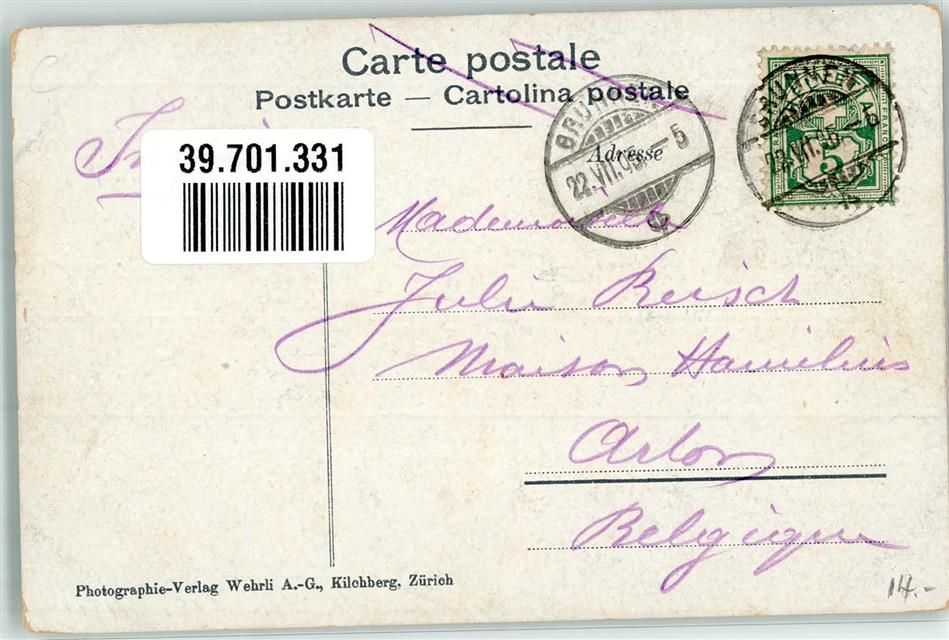 Carte postale
Postkarte — Cartolina postale
39.701.331
Adresse
BRUNNEN
22.VII.05.-5
BRUNNEN
22.VII.05.
FRANCO
5
Mademoiselle
Julie Reisch
Maison Hamilius
Arlon
Belgique
Photographie-Verlag Wehrli A.-G., Kilchberg, Zürich
14.-